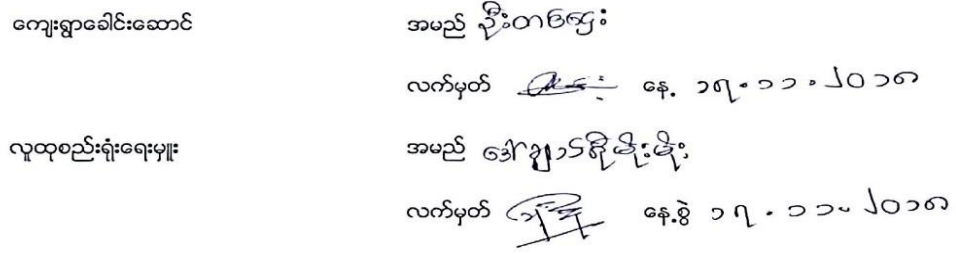 ကျေးရွာခေါင်းဆောင် အမည် ဦးတ
လက်မှတ် နေ့ ၁၇.၁၁.၂၀၁၈
လူထုစည်းရုံးရေးမှူး အမည် ဒေါ်ချ
လက်မှတ် နေ့စွဲ ၁၇.၁၁.၂၀၁၈